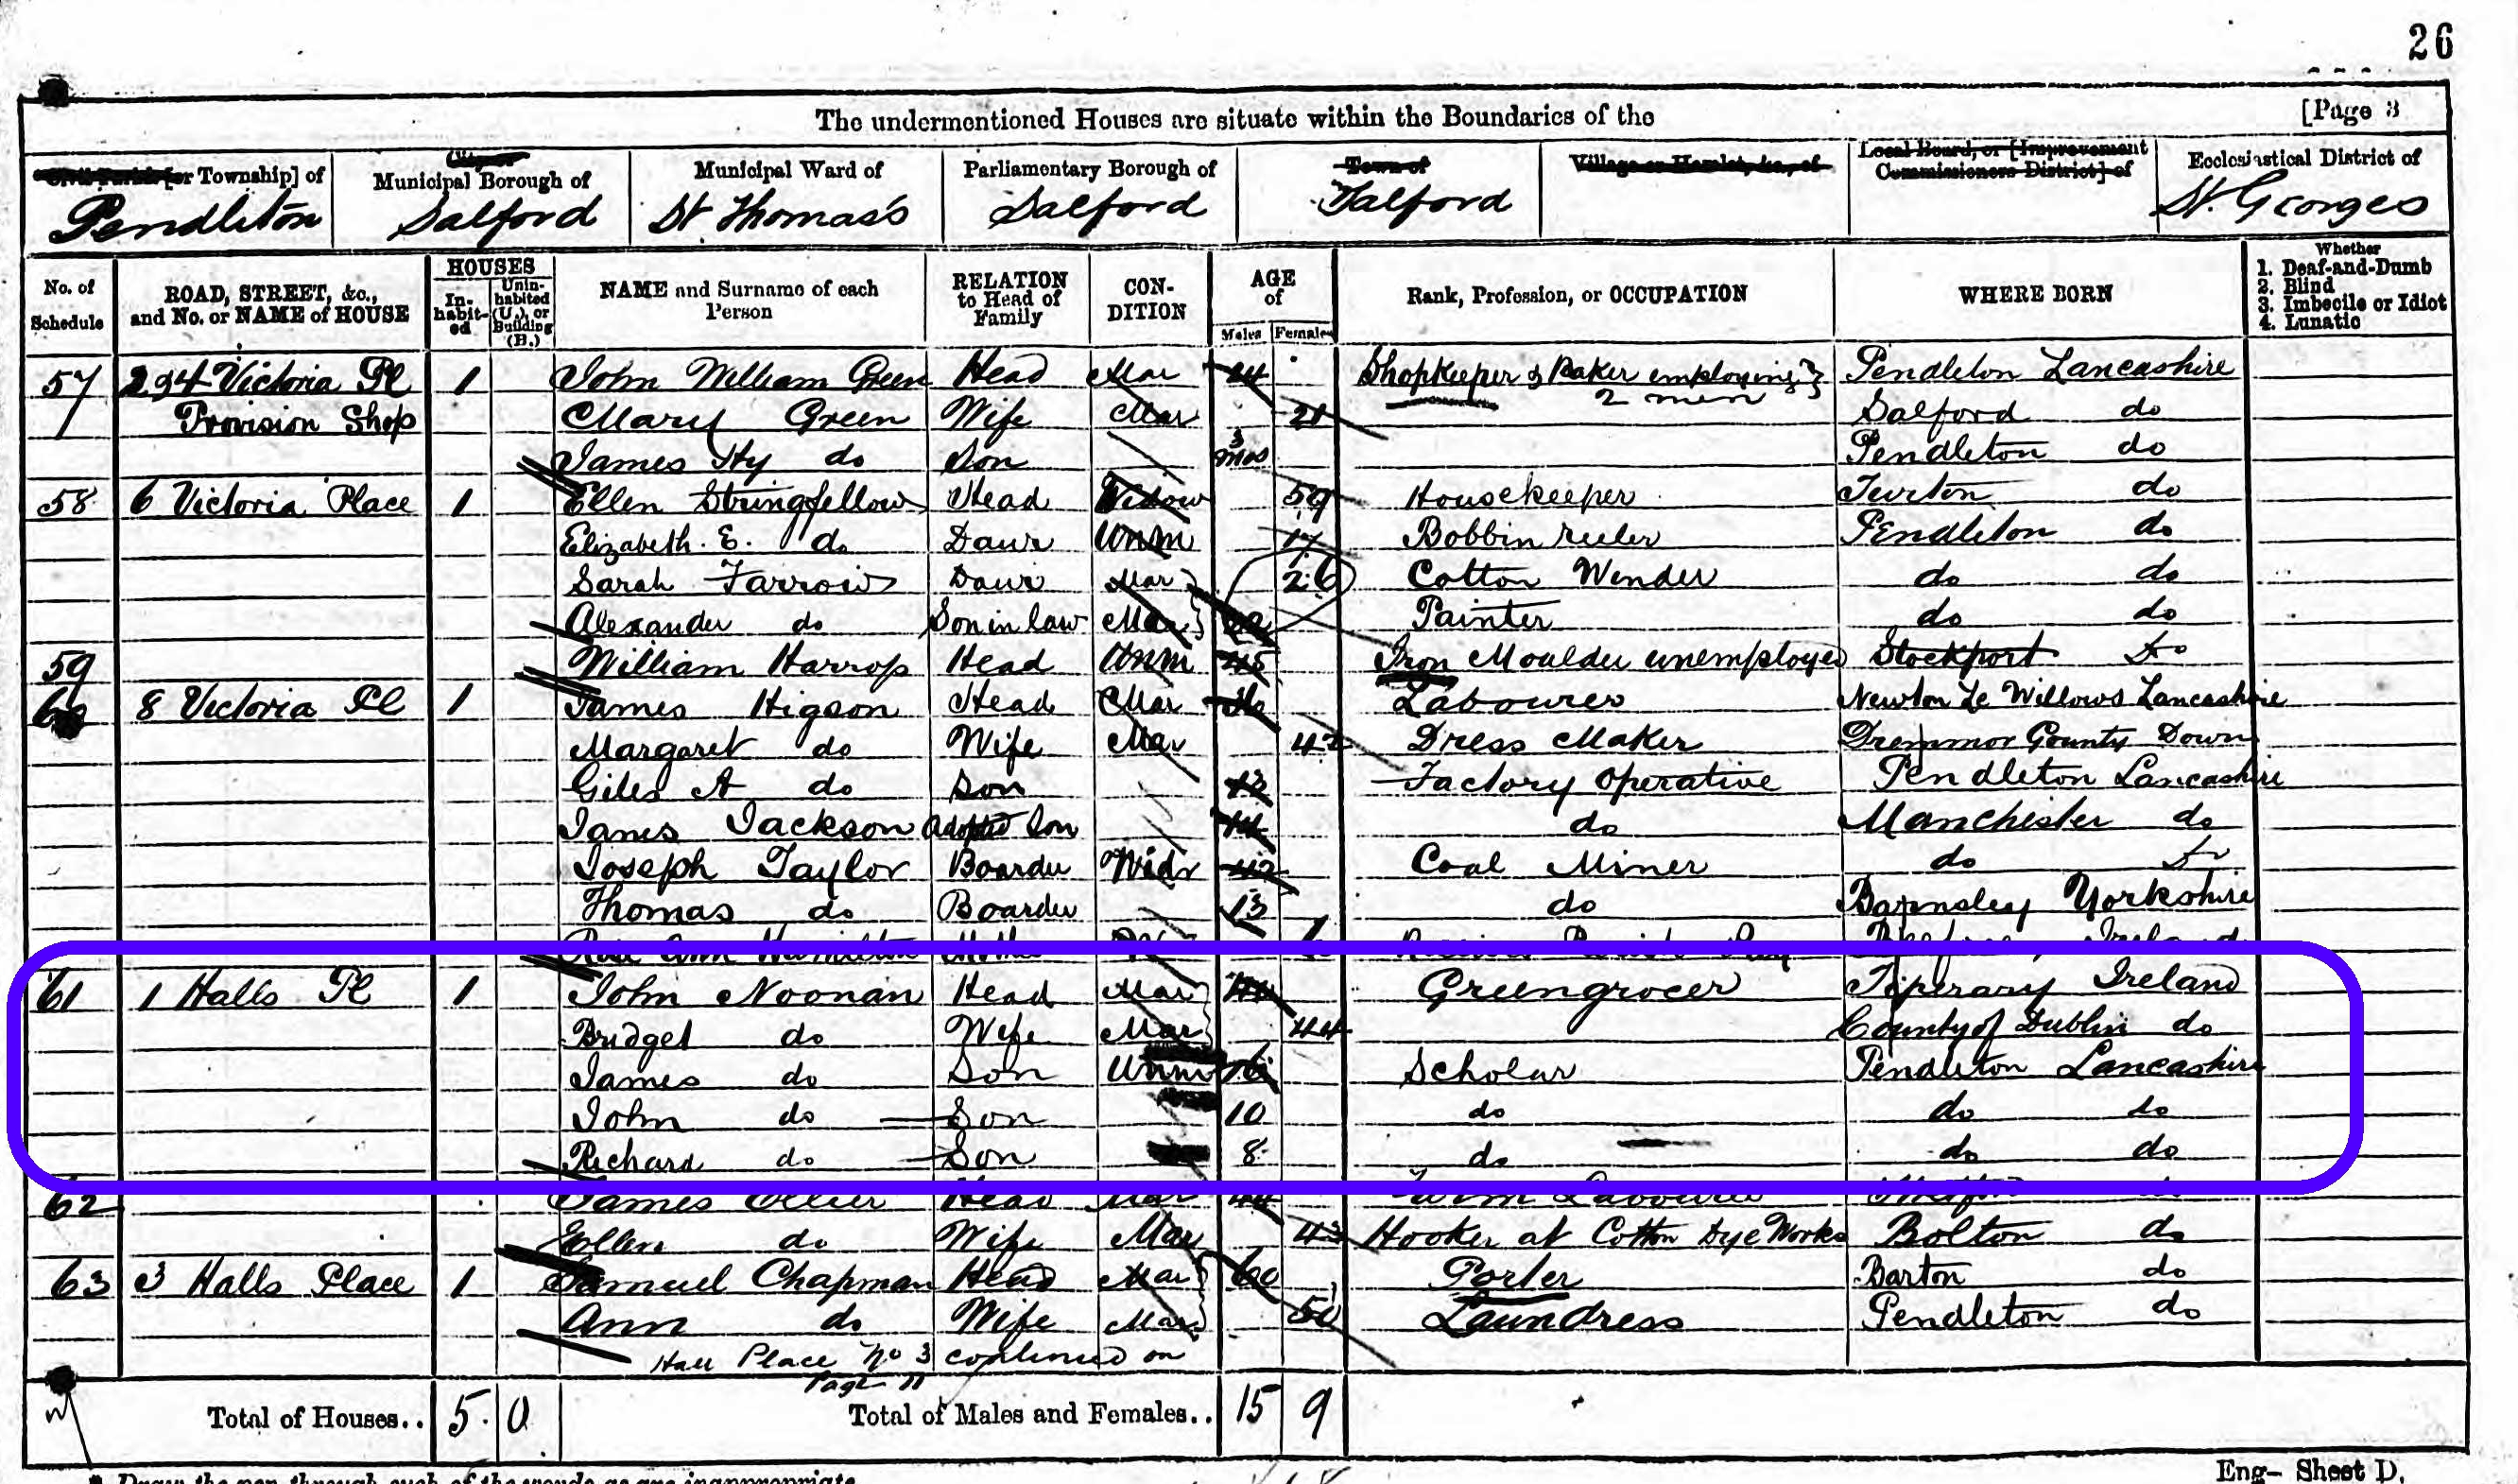 26
The undermentioned Houses are situate within the Boundaries of the [Page 3
Civil Parish [or Township] of Municipal Borough of Municipal Ward of Parliamentary Borough of Town of Village or Hamlet, &c., of Local Board, or [Improvement Commissioners District] of Ecclesiastical District of
Pendleton Salford St. Thomas's Salford Salford St. Georges
No. of Schedule ROAD, STREET, &c., and No. or NAME of HOUSE HOUSES Inhabited Uninhabited (U.), or Building (B.) NAME and Surname of each Person RELATION to Head of Family CONDITION AGE of Males Females Rank, Profession, or OCCUPATION WHERE BORN Whether 1. Deaf-and-Dumb 2. Blind 3. Imbecile or Idiot 4. Lunatic
57 294 Victoria Pl 1 John William Green Head Mar 24 Shopkeeper & Baker employing 2 men Pendleton Lancashire
Provision Shop Mary Green Wife Mar 21 Salford do
James Hy do Son 3 mos Pendleton do
58 6 Victoria Place 1 Ellen Stringfellow Head Widow 59 Housekeeper Turton do
Elizabeth. E. do Daur Unm 17 Bobbin reeler Pendleton do
Sarah Farrow Daur Mar 26 Cotton Winder do do
Alexander do Son in law Mar Painter do do
59 William Harrop Head Unm 45 Iron Moulder unemployed Stockport do
60 8 Victoria Pl 1 James Higson Head Mar Labourer Newton Le Willows Lancashire
Margaret do Wife Mar 42 Dress Maker Drommor County Down
Giles A do Son 13 Factory Operative Pendleton Lancashire
James Jackson Adopted Son 14 do Manchester do
Joseph Taylor Boarder Widr 42 Coal Miner do do
Thomas do Boarder 13 do Barnsley Yorkshire
Rose Ann Hamilton Ireland
61 1 Halls Pl 1 John Noonan Head Mar Greengrocer Tiperary Ireland
Bridget do Wife Mar 44 County of Dublin do
James do Son Unm 16 Scholar Pendleton Lancashire
John do Son 10 do do do
Richard do Son 8 do do do
62 James Head Mar 44 Labourer do
Ellen do Wife Mar 43 Hooker at Cotton Dye Works Bolton do
63 3 Halls Place 1 Samuel Chapman Head Mar 60 Porter Barton do
Ann do Wife Mar 50 Laundress Pendleton do
Hall Place No 3 continued on Page 11
Total of Houses.. 5 0 Total of Males and Females.. 15 9
* Draw the pen through such of the words as are inappropriate
Eng- Sheet D.